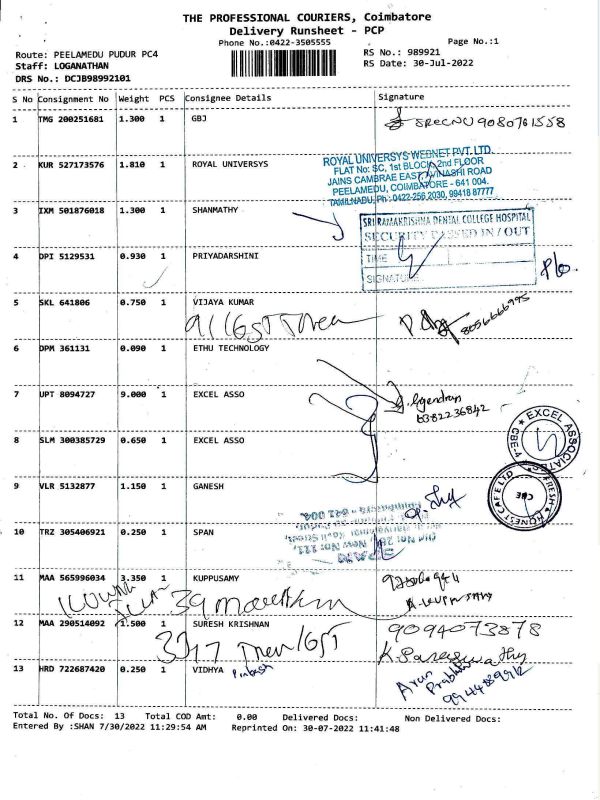 THE PROFESSIONAL COURIERS, Coimbatore
Delivery Runsheet - PCP
Phone No.:0422-3505555
Page No.:1
Route: PEELAMEDU PUDUR PC4
RS No.: 989921
Staff: LOGANATHAN
RS Date: 30-Jul-2022
DRS No.: DCJB98992101
S No Consignment No Weight PCS Consignee Details Signature
1 TMG 200251681 1.300 1 GBJ
SREENU 9080761558
2 KUR 527173576 1.810 1 ROYAL UNIVERSYS
ROYAL UNIVERSYS WEBNET PVT. LTD.
FLAT No: 5C, 1st BLOCK, 2nd FLOOR
JAINS CAMBRAE EAST, AVINASHI ROAD
PEELAMEDU, COIMBATORE - 641 004.
TAMILNADU, Ph: 0422-256 2030, 99418 87777
3 IXM 501876018 1.300 1 SHANMATHY
SRI RAMAKRISHNA DENTAL COLLEGE HOSPITAL
SECURITY PASSED IN / OUT
TIME
SIGNATURE
4 DPI 5129531 0.930 1 PRIYADARSHINI
5 SKL 641806 0.750 1 VIJAYA KUMAR
8056666995
6 DPM 361131 0.090 1 ETHU TECHNOLOGY
7 UPT 8094727 9.000 1 EXCEL ASSO
6382236842
EXCEL ASSOCIATE
CBE-4
8 SLM 300385729 0.650 1 EXCEL ASSO
FRESH & HONEST CAFE LTD
CBE
9 VLR 5132877 1.150 1 GANESH
10 TRZ 305406921 0.250 1 SPAN
11 MAA 565996034 3.350 1 KUPPUSAMY
A. KUPPUSAMY
12 MAA 290514092 1.500 1 SURESH KRISHNAN
9094073878
K. Saraswathy
13 HRD 722687420 0.250 1 VIDHYA Prakash
Arun
Prabhu
Total No. Of Docs: 13 Total COD Amt: 0.00 Delivered Docs: Non Delivered Docs:
Entered By :SHAN 7/30/2022 11:29:54 AM Reprinted On: 30-07-2022 11:41:48